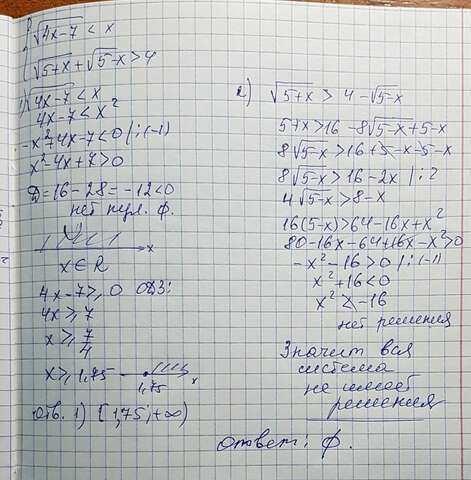 √4x-7 < x
√5+x + √5-x > 4
1) √4x-7 < x
4x-7 < x²
-x²+4x-7<0 /:(-1)
x²-4x+7>0
D=16-28=-12<0
нет нул. ф.
x
x∈R
4x-7≥0 ОДЗ:
4x≥7
x≥7/4
x≥1,75
1,75 x
Отв. 1) [1,75;+∞)
2) √5+x > 4-√5-x
5+x>16-8√5-x+5-x
8√5-x>16+5-x-5-x
8√5-x>16-2x /:2
4√5-x>8-x
16(5-x)>64-16x+x²
80-16x-64+16x-x²>0
-x²-16>0 /:(-1)
x²+16<0
x²<-16
нет решения
Значит вся
система
не имеет
решения
Ответ: ф.